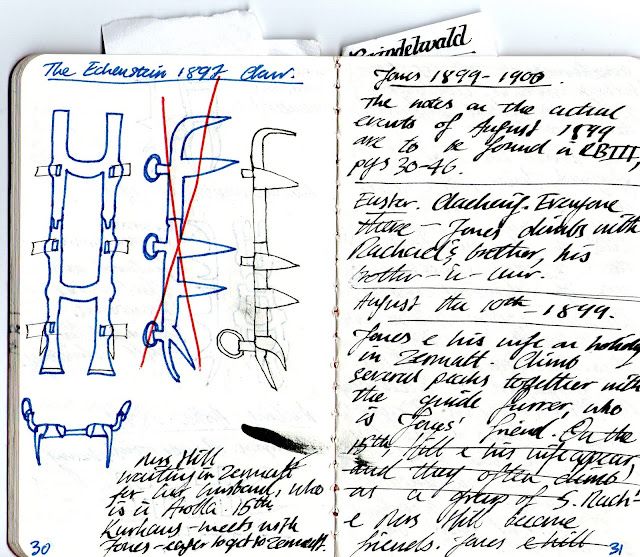 Grindelwald
The Eckenstein 1897 Claw.
Mrs Hill
waiting in Zermatt
for her husband, who
is in Arolla. 15th
Kurhaus - meets with
Jones - eager to get to Zermatt.
30
Jones 1899-1900
The notes on the actual
events of August 1899
are to be found in RBIII,
pgs 30-46.
Easter. Clachaig. Everyone
there - Jones climbs with
Rachael's brother, his
brother-in-law.
August the 10th - 1899.
Jones & his wife on holiday
in Zermatt. Climb
several peaks together with
the guide Furrer, who
is Jones' friend. On the
15th, Hill & his wife appear,
and they often climb
as a group of 5. Rach
& Mrs Hill become
friends. Jones & Hill
31